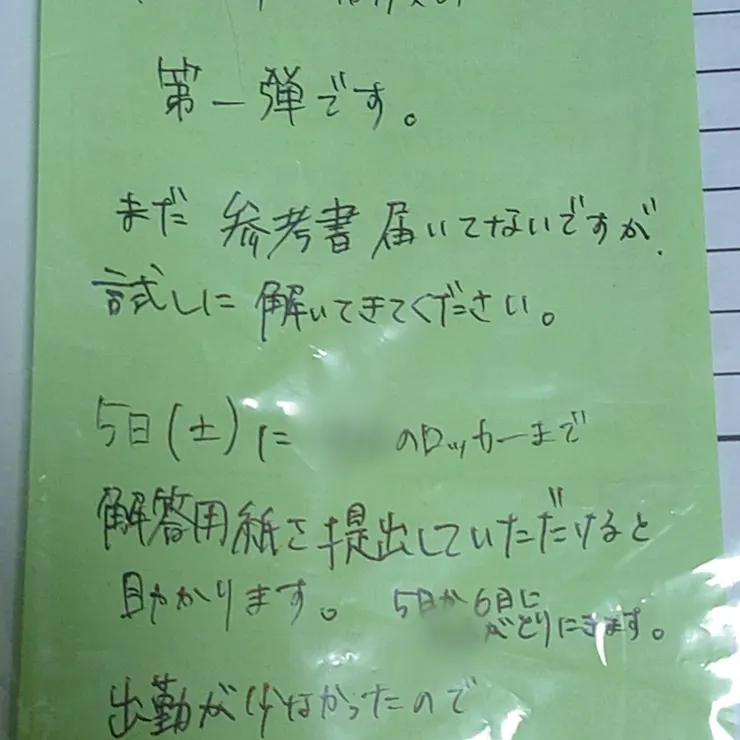 第一弾です。
まだ 参考書 届いてないですが、
試しに 解いてきてください。
5日(土)に のロッカーまで
解答用紙を提出していただけると
助かります。 5日か6日に
がとりにきます。
出勤が なかったので